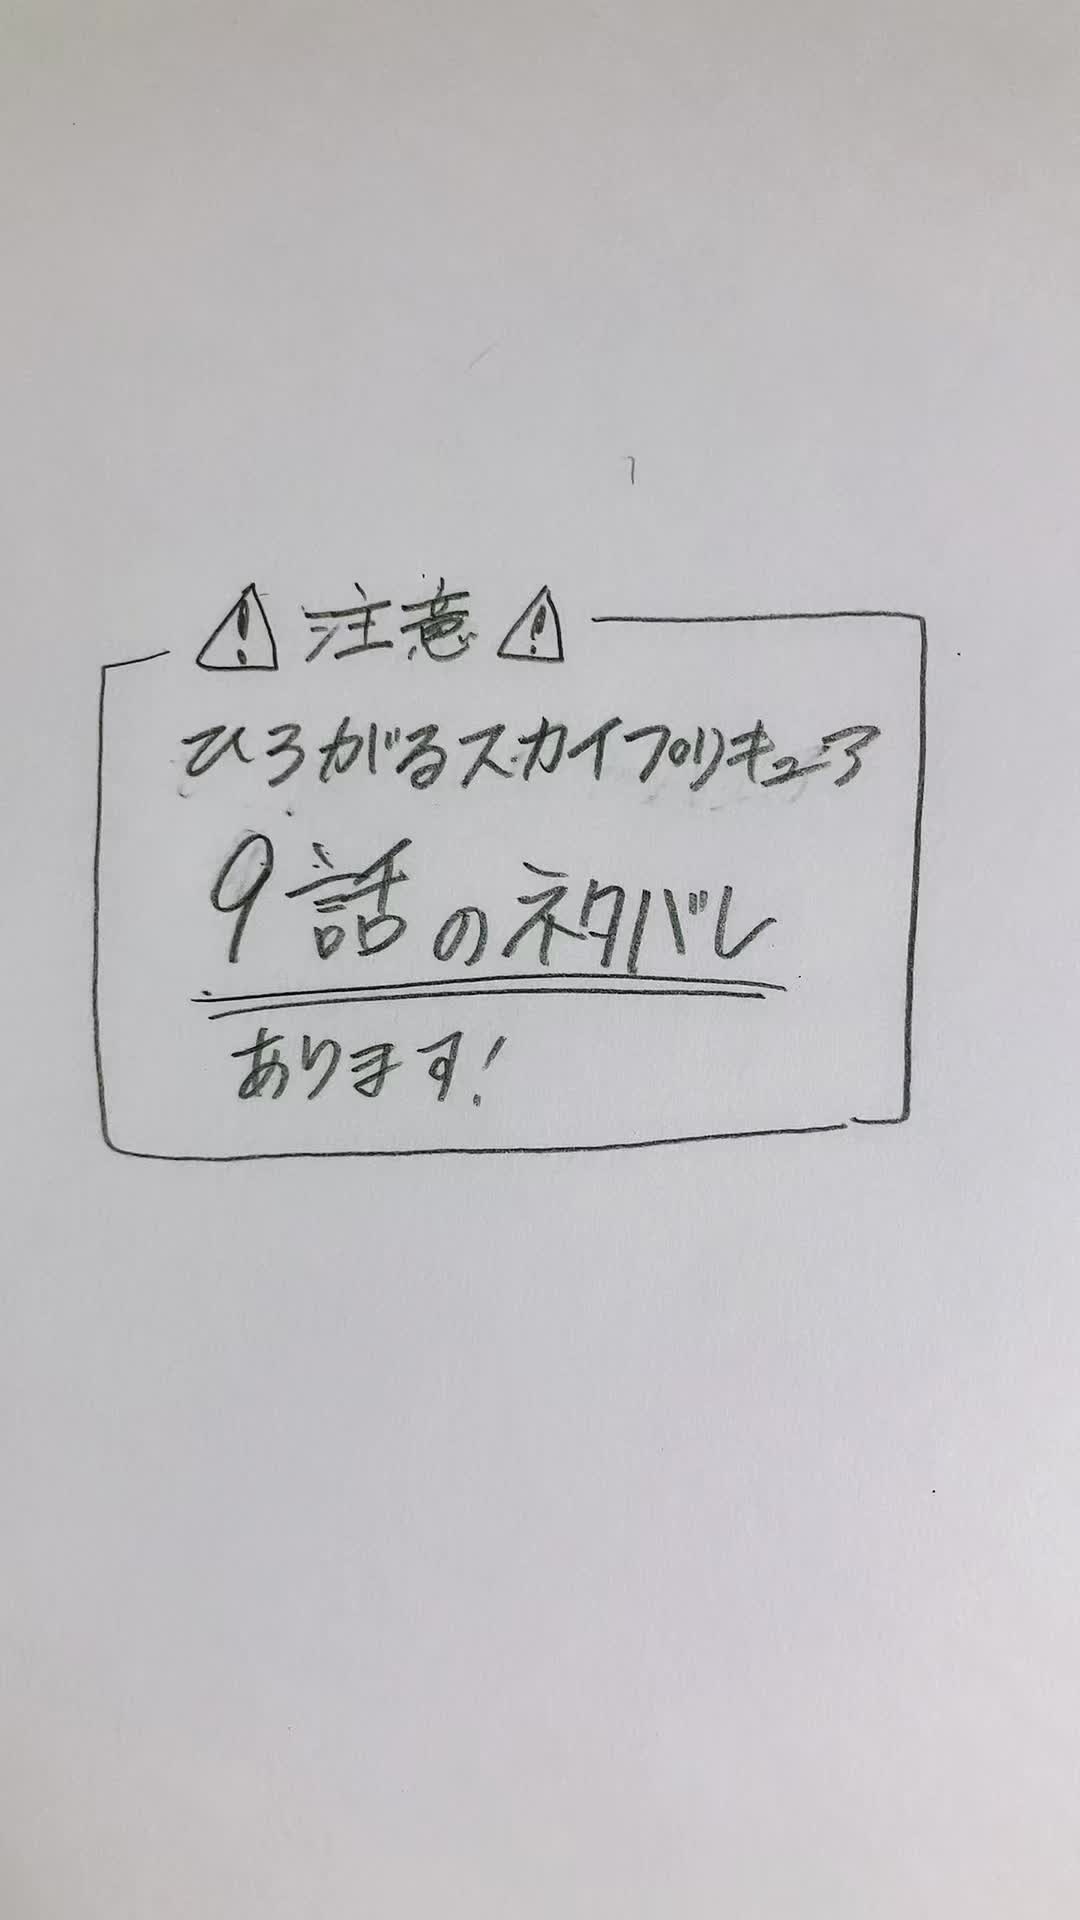 ⚠注意⚠
ひろがるスカイプリキュア
9話のネタバレ
あります!